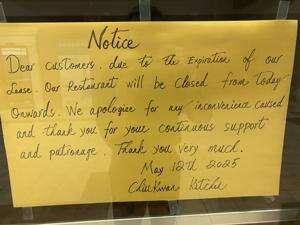 Notice
Dear customers. due to the Expiration of our
Lease. Our Restaurant will be Closed from Today
Onwards. We apologize for any inconvenience Caused
and thank you for your continuous support
and patronage. Thank you very much.
May 12th 2025
Kitchen